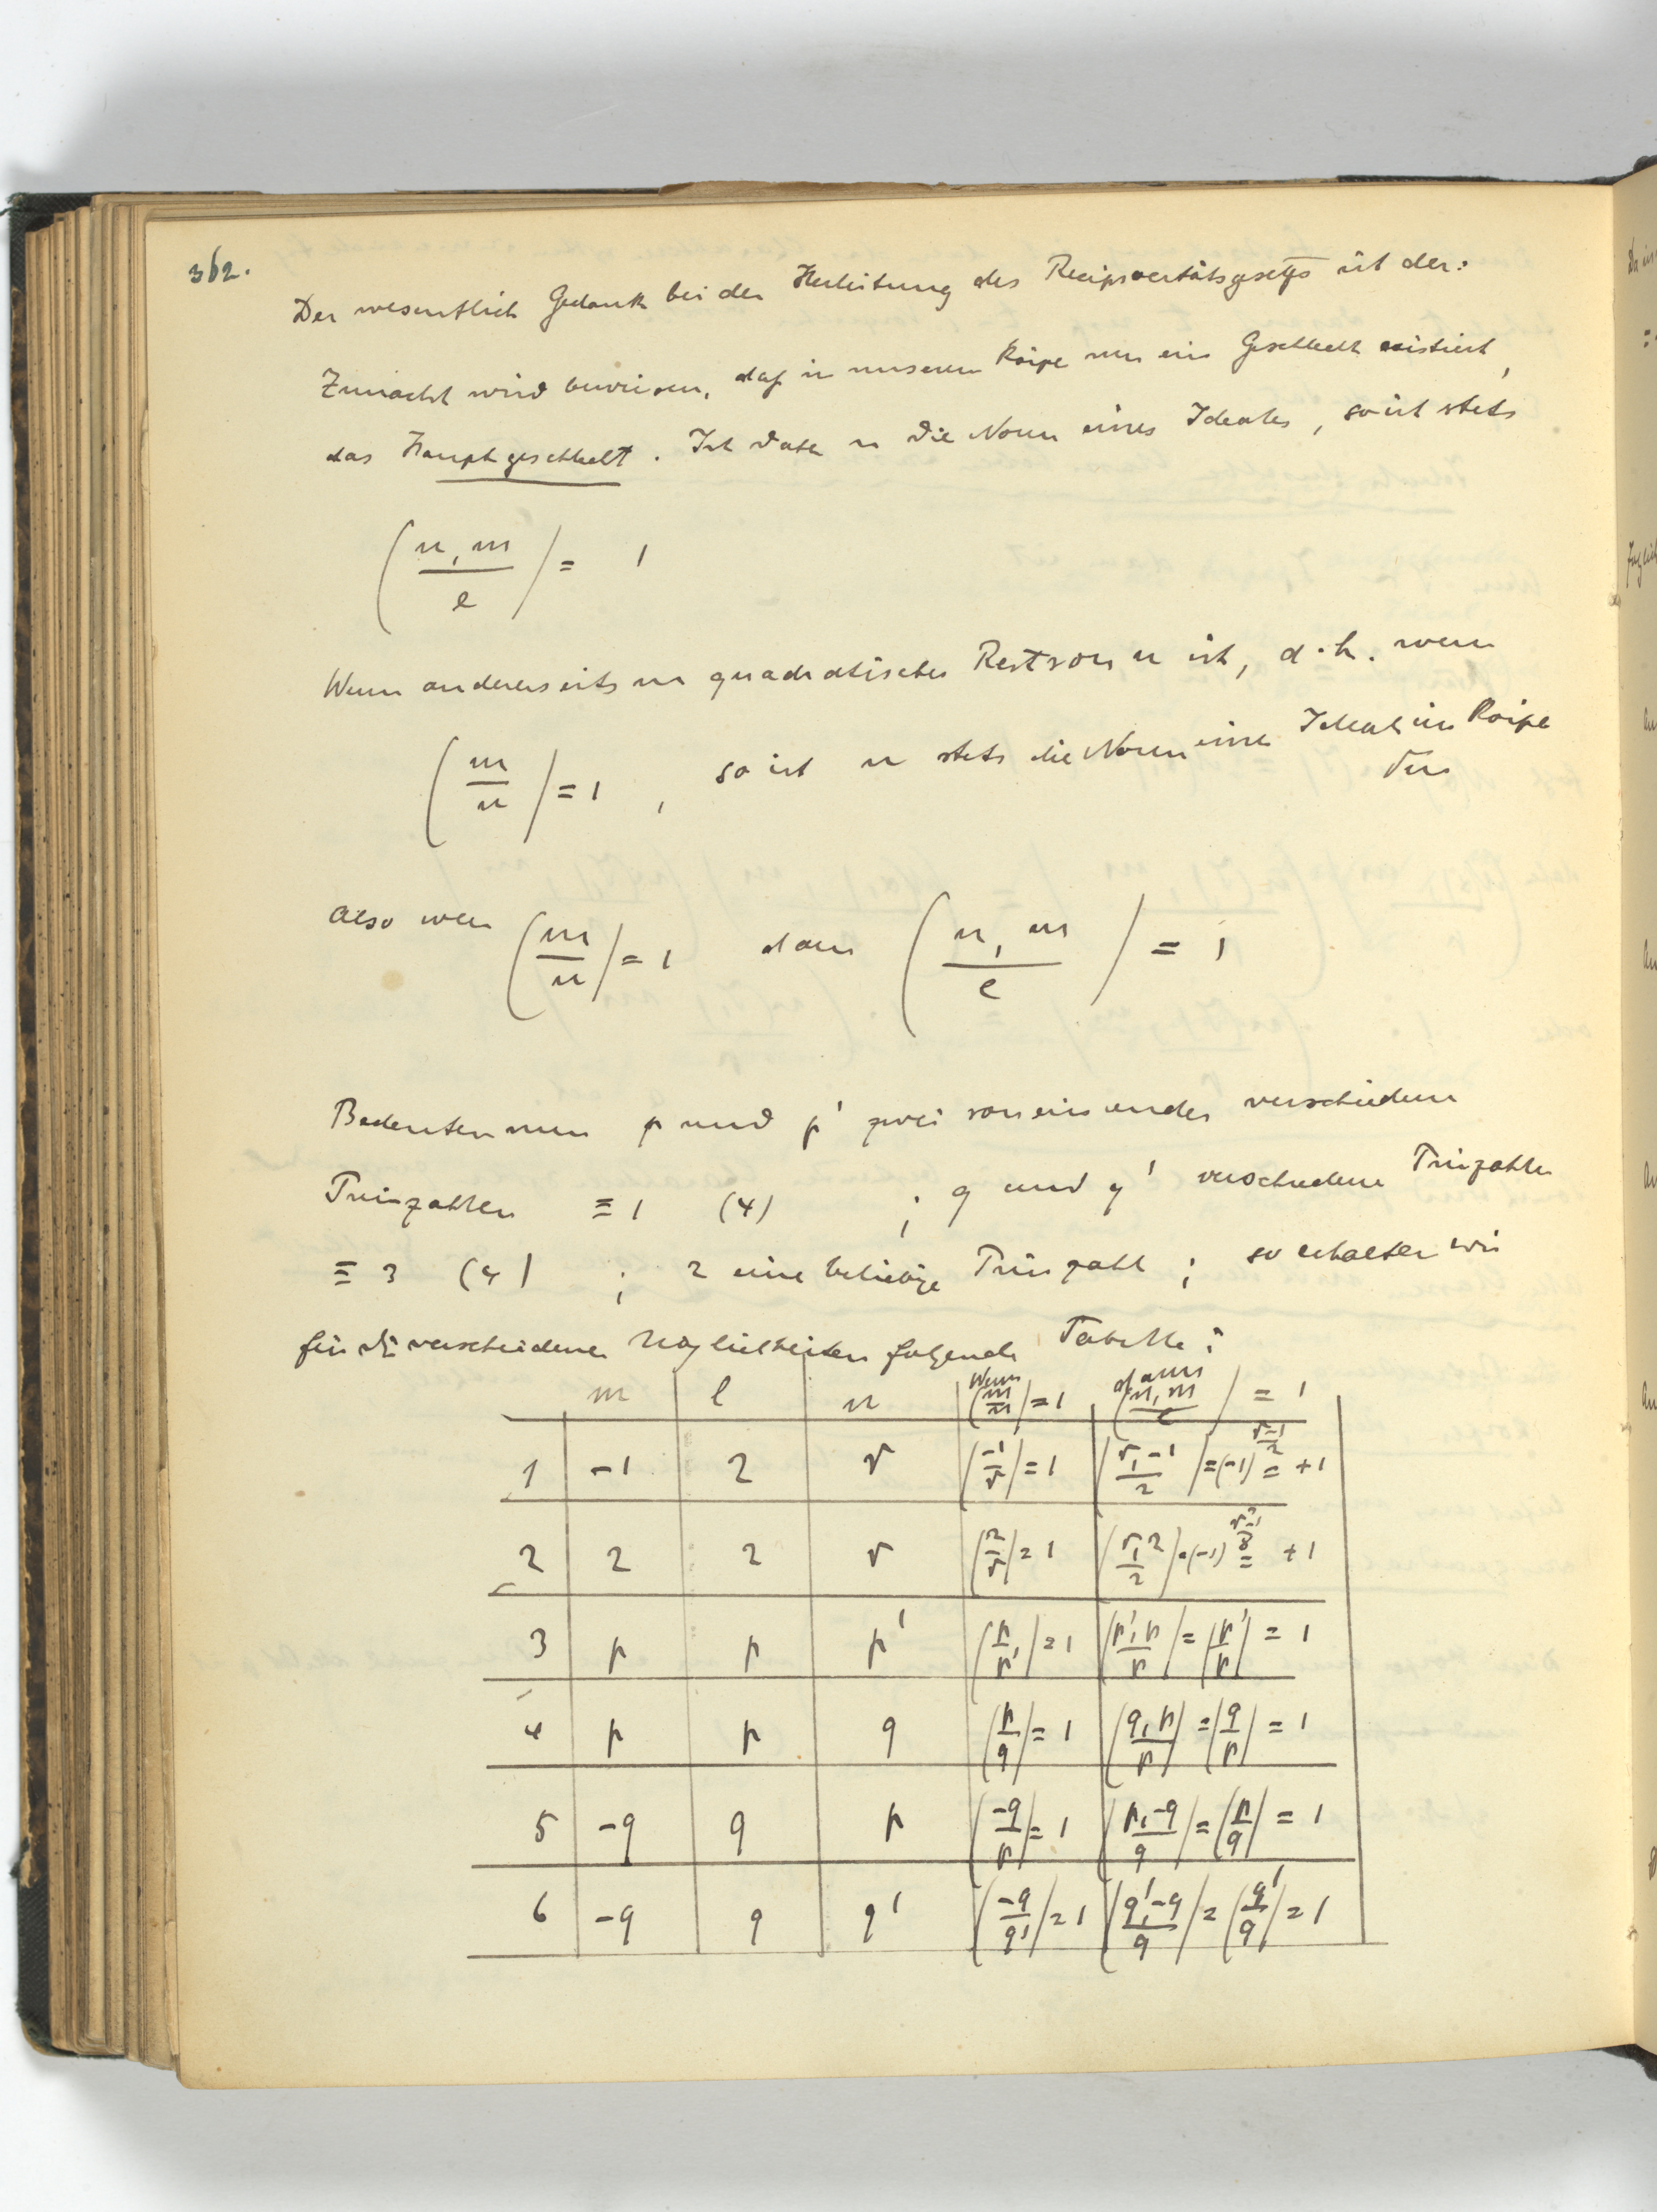 362.
Der wesentlich Gedank bei der Herleitung des Reciprocitätsgesetzes ist der:
Zunächst wird bewiesen, daß in unserem Körper nur ein Geschlecht existiert,
das Hauptgeschlecht. Ist daher n die Norm eines Ideales, so ist stets
(n, m / l) = 1
Wenn andererseits m quadratischer Rest von n ist, d.h. wenn
(m / n) = 1, so ist n stets die Norm eines Ideals im Körper
Also wenn (m / n) = 1 dann (n, m / l) = 1
Bedeuten nun p und p' zwei von einander verschiedene
Primzahlen ≡ 1 (4) ; q und q' verschiedene Primzahlen
≡ 3 (4) ; r eine beliebige Primzahl ; so erhalten wir
für die verschiedenen Möglichkeiten folgende Tabelle:
m l n Wenn (m / n) = 1 dann (n, m / l) = 1
1 -1 2 r (-1 / r) = 1 (r, -1 / 2) = (-1)^{(r-1)/2} = +1
2 2 2 r (2 / r) = 1 (r, 2 / 2) = (-1)^{(r²-1)/8} = +1
3 p p p' (p / p') = 1 (p', p / p) = (p' / p) = 1
4 p p q (p / q) = 1 (q, p / p) = (q / p) = 1
5 -q q p (-q / p) = 1 (p, -q / q) = (p / q) = 1
6 -q q q' (-q / q') = 1 (q', -q / q) = (q' / q) = 1